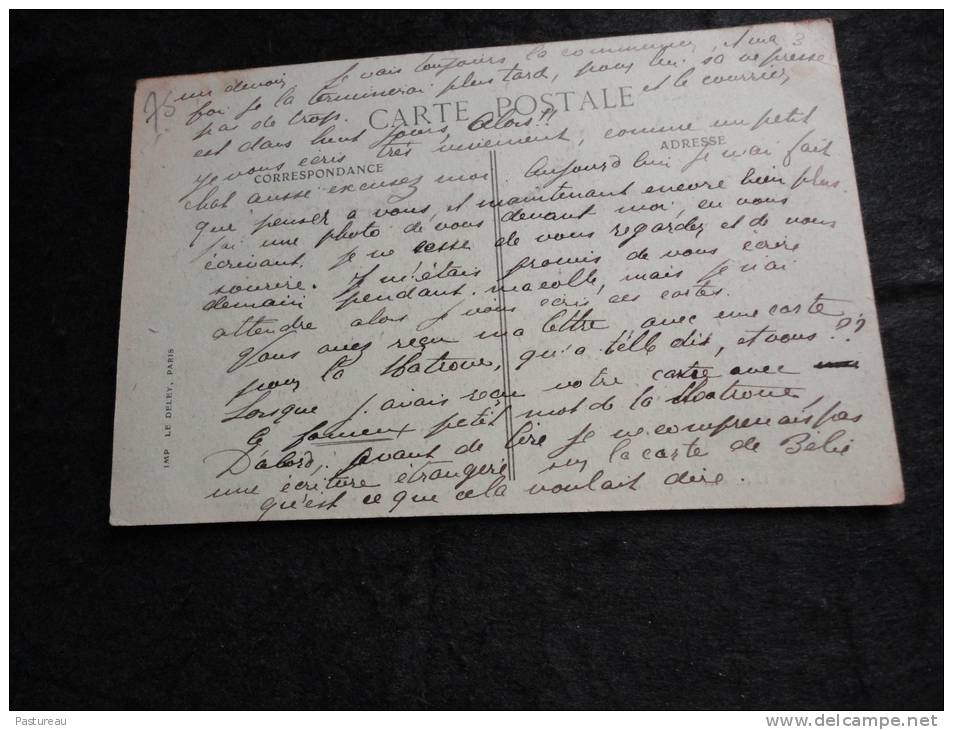 3
75
un devoir, je vais toujours la commencer, et ma
foi je la terminerai plus tard, pour lui sa ne presse
pas de trop. et le courrier
CARTE POSTALE
est dans huit jours, alors!!
je vous écris très vivement, comme un petit
CORRESPONDANCE
ADRESSE
chat aussi excusez moi. Aujourd hui je n'ai fait
que penser à vous, et maintenant encore bien plus.
j'ai une photo de vous devant moi, en vous
écrivant. je ne cesse de vous regarder et de vous
sourire. Je m'étais promis de vous écrire
demain pendant ma colle, mais je n'ai
attendre alors je vous écris ces cartes.
Vous avez reçu ma lettre avec une carte
pour la Matrone, qu'a t'elle dit, et vous??
Lorsque j'avais reçu votre carte avec
le fameux petit mot de la Matrone,
D'abord, avant de lire je ne comprenais pas
une écriture étrangère sur la carte de Bébé
qu'est ce que cela voulait dire.
IMP. LE DELEY, PARIS
Pastureau
www.delcampe.net